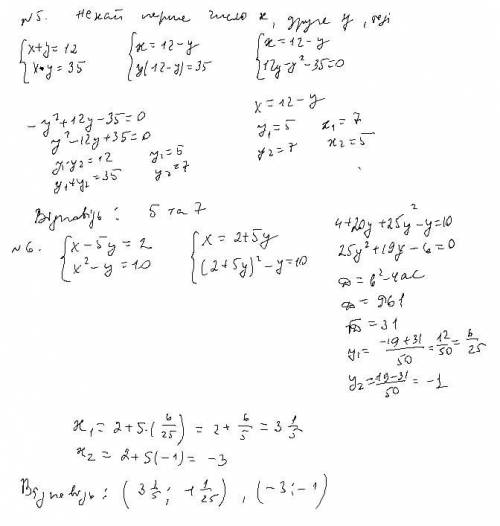 №5. Нехай перше число x, друге y, тоді
{x+y=12 {x=12-y {x=12-y
{x•y=35 {y(12-y)=35 {12y-y²-35=0
-y²+12y-35=0
y²-12y+35=0
y1·y2=12 y1=5
y1+y2=35 y2=7
x=12-y
y1=5 x1=7
y2=7 x2=5
Відповідь: 5 та 7
№6. {x-5y=2 {x=2+5y
{x²-y=10 {(2+5y)²-y=10
4+20y+25y²-y=10
25y²+19y-6=0
D=b²-4ac
D=961
√D=31
y1=(-19+31)/50=12/50=6/25
y2=(-19-31)/50=-1
x1=2+5·(6/25)=2+6/5=3 1/5
x2=2+5(-1)=-3
Відповідь: (3 1/5; 1/25), (-3;-1)